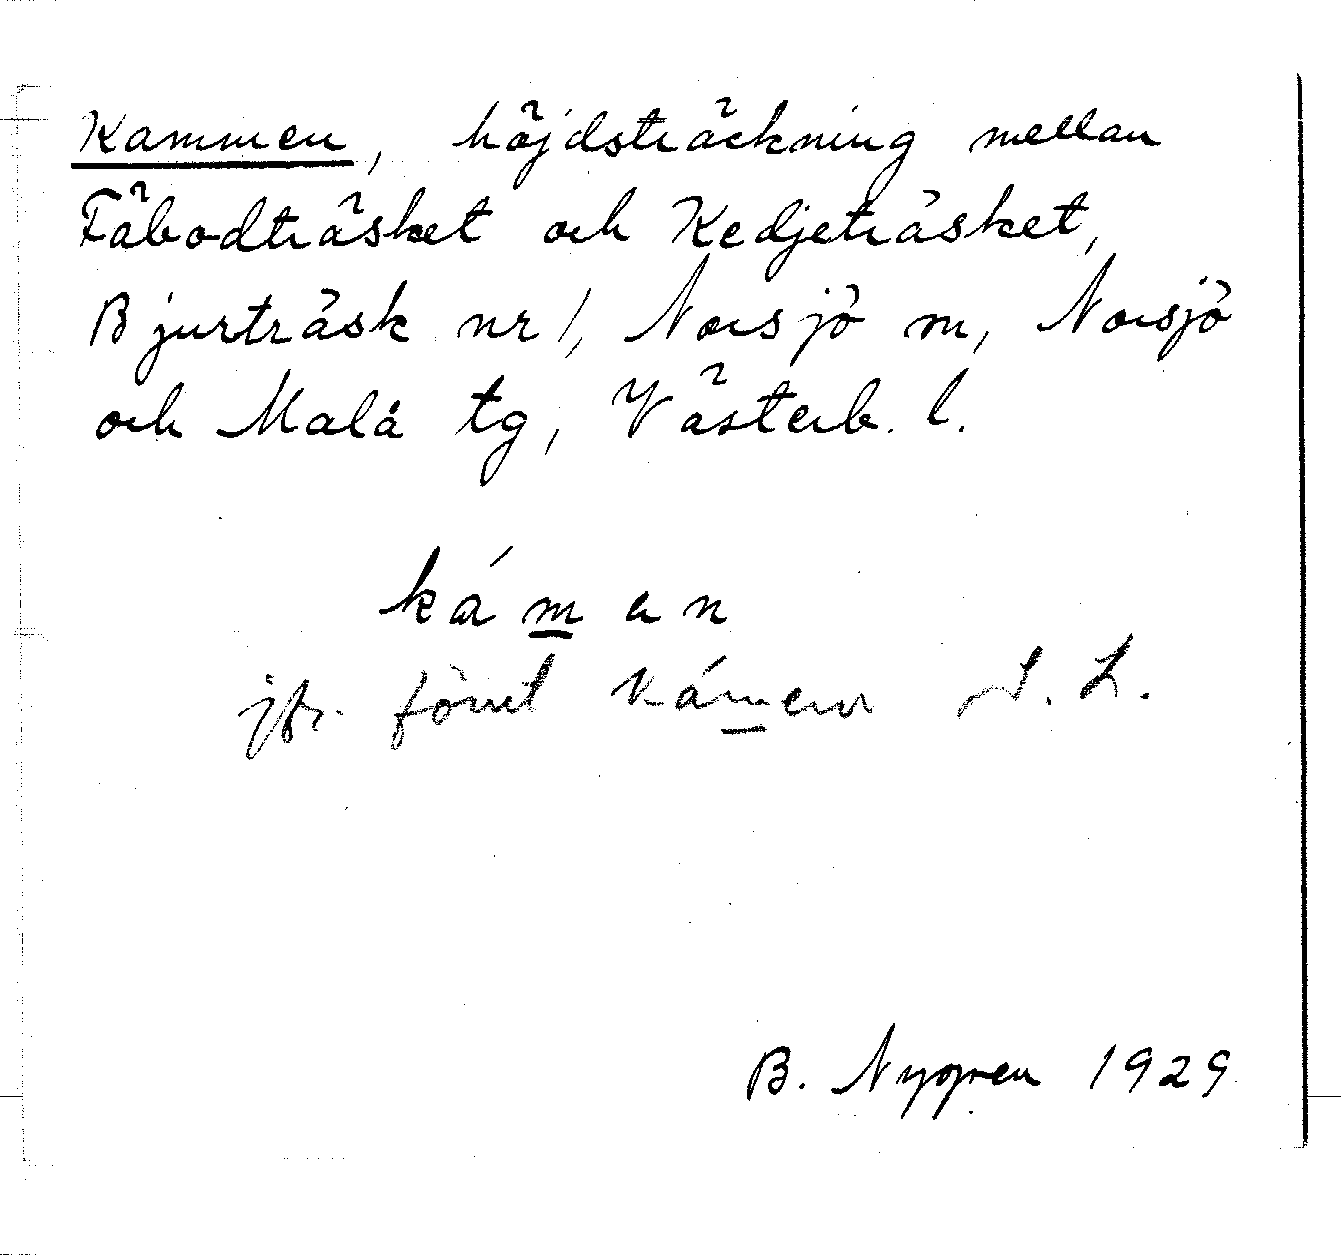 Kammen, höjdsträckning mellan
Fäbodträsket och Kedjeträsket,
Bjurträsk nr 1, Norsjö m, Norsjö
och Malå tg, Västerb. l.
kámen
jfr. förut kámen
B. Nygren 1929